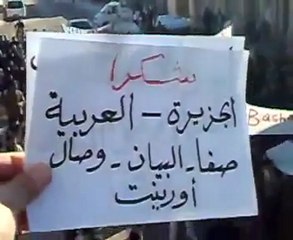 شكرا
الجزيرة - العربية
صفا - البيان - وصال
أورينت
Basha